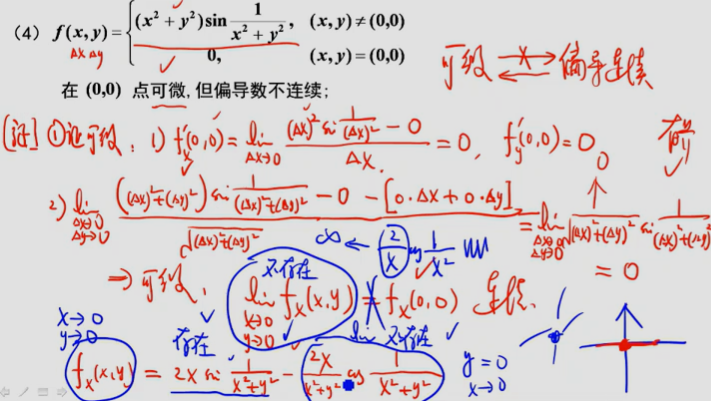 (4) f(x,y)={(x²+y²)sin 1/(x²+y²), (x,y)≠(0,0)
0, (x,y)=(0,0)
Δx Δy
在 (0,0) 点可微,但偏导数不连续;
可微 ⇄ 偏导连续
[证] ①证可微: 1) f'x(0,0)=lim Δx→0 ((Δx)² sin 1/(Δx)² − 0)/Δx = 0, f'y(0,0)=0
2) lim Δx→0 Δy→0 (((Δx)²+(Δy)²) sin 1/((Δx)²+(Δy)²) − 0 − [0·Δx+0·Δy])/√((Δx)²+(Δy)²) = lim Δx→0 Δy→0 √((Δx)²+(Δy)²) sin 1/((Δx)²+(Δy)²)
0
有界
= 0
∞ ← 2/x cos 1/x²
⇒ 可微,
不存在
lim x→0 y→0 fx(x,y) = fx(0,0) 连续.
x→0
y→0
存在
lim 不存在
fx(x,y) = 2x sin 1/(x²+y²) − 2x/(x²+y²) cos 1/(x²+y²)
y=0
x→0